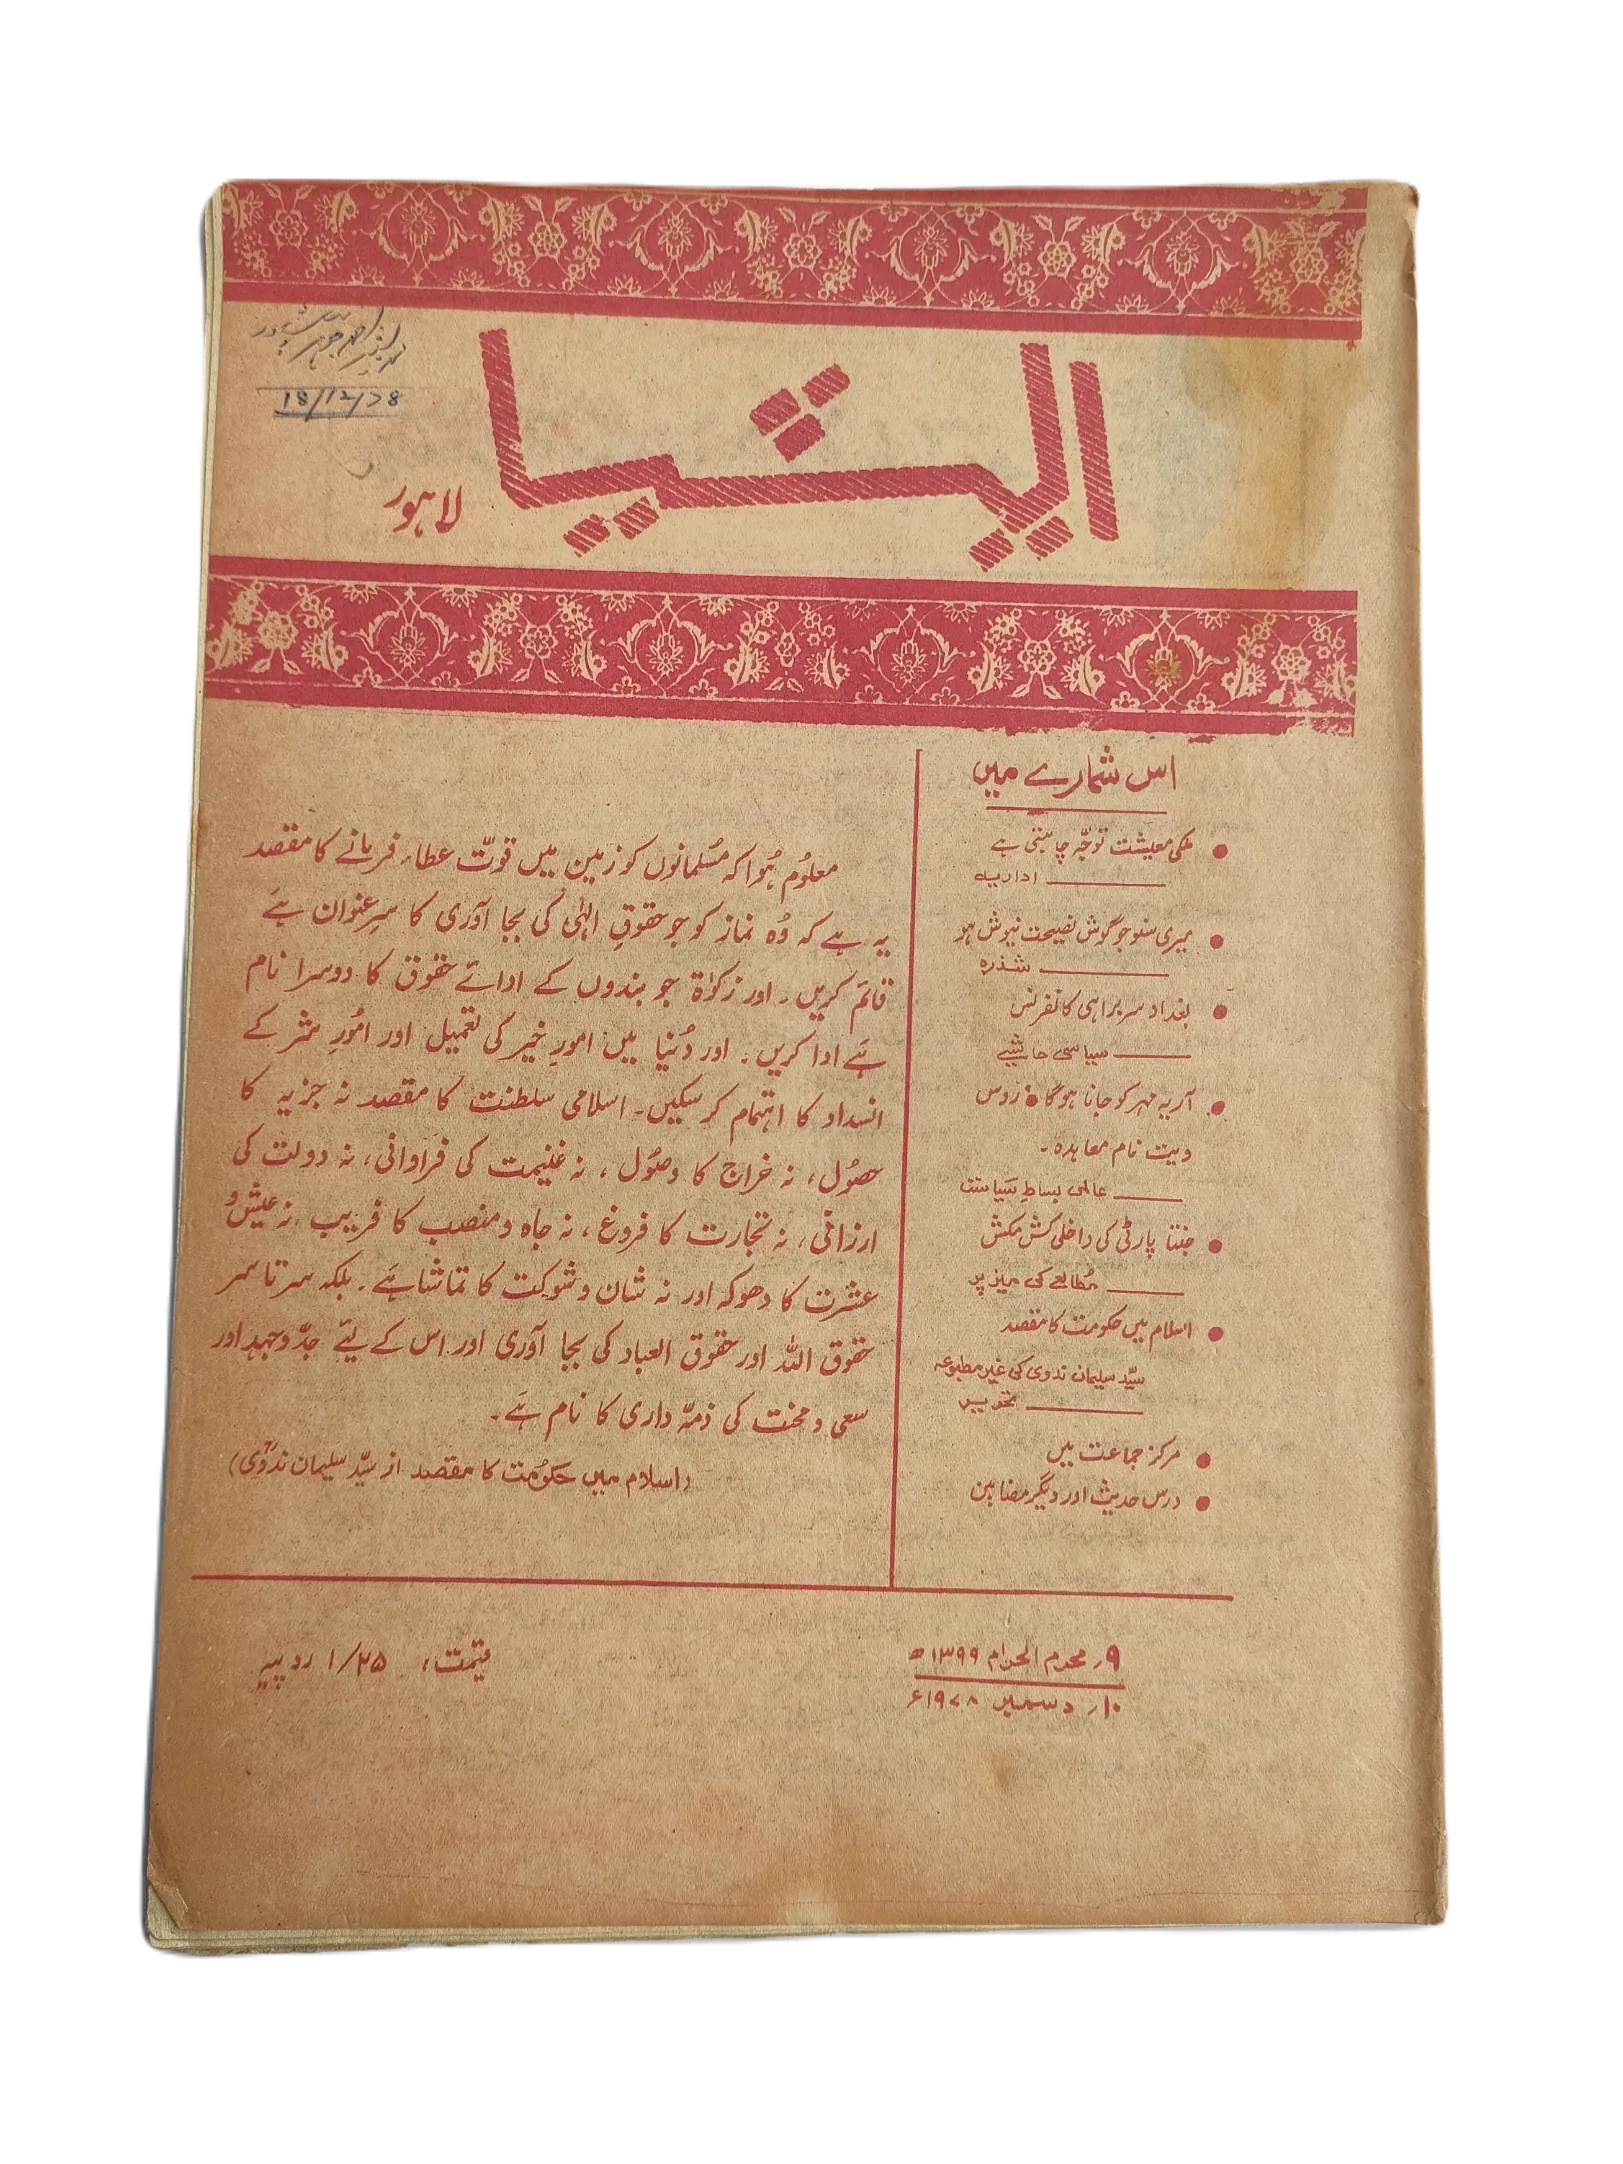 ایشیا
لاہور
18/12/78
اس شمارے میں
● ملکی معیشت توجّہ چاہتی ہے
اداریہ
● میری سنو جو گوش نصیحت نیوش ہو
شذرہ
● بغداد سربراہی کانفرنس
سیاسی حاشیے
● آریہ مہر کو جانا ہوگا ● روس
ویت نام معاہدہ ۔
عالمی بساطِ سیاست
● جنتا پارٹی کی داخلی کش مکش
مُطالعے کی میز پر
● اسلام میں حکومت کا مقصد
سیّد سلیمان ندوی کی غیر مطبوعہ
تحریر
● مرکز جماعت میں
● درس حدیث اور دیگر مضامین
معلوُم ہُوا کہ مُسلمانوں کو زمین میں قوتّ عطاء فرمانے کا مقصد
یہ ہے کہ وُہ نماز کو جو حقوقِ الہٰی کی بجا آوری کا سرِعنوان ہے
قائم کریں۔ اور زکوٰۃ جو بندوں کے ادائے حقوق کا دوسرا نام
ہَے ادا کریں۔ اور دُنیا میں امورِ خیر کی تعمیل اور امُورِ شر کے
انسداد کا اہتمام کر سکیں۔ اسلامی سلطنت کا مقصد نہ جزیہ کا
حصوُل، نہ خراج کا وصوُل، نہ غنیمت کی فراوانی، نہ دولت کی
ارزانی، نہ تجارت کا فروغ، نہ جاہ و منصب کا فریب، نہ عیش و
عشرت کا دھوکہ اور نہ شان و شوکت کا تماشا ہَے۔ بلکہ سر تا سر
حقوق اللہ اور حقوق العباد کی بجا آوری اور اس کے لیئے جدّ وجہد اور
سعی و محنت کی ذمہّ داری کا نام ہَے۔
(اسلام میں حکوُمت کا مقصد از سیّد سلیمان ندویؒ)
۹ر محرم الحرام ۱۳۹۹ھ
۱۰ر دسمبر ۱۹۷۸ء
قیمت، ۱/۲۵ روپیہ